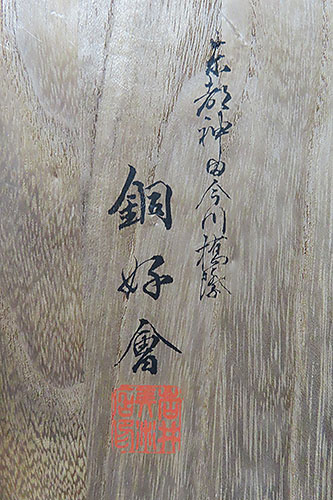 東都神田今川橋際
銅好會